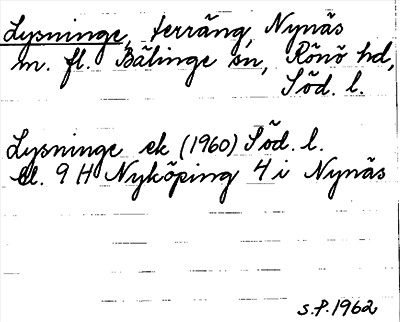 Lysninge, terräng, Nynäs
m. fl. Bälinge sn, Rönö hd,
Söd. l.
Lysninge ek (1960) Söd. l.
bl. 9 H Nyköping 4 i Nynäs
S.P. 1962